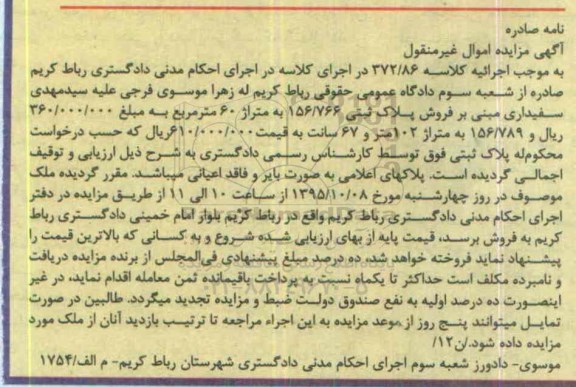 نامه صادره
آگهی مزایده اموال غیرمنقول
به موجب اجرائیه کلاسه ۳۷۲/۸۶ در اجرای کلاسه در اجرای احکام مدنی دادگستری رباط کریم
صادره از شعبه سوم دادگاه عمومی حقوقی رباط کریم له زهرا موسوی فرجی علیه سیدمهدی
سفیداری مبنی بر فروش پلاک ثبتی ۱۵۶/۷۶۶ به متراژ ۶۰ مترمربع به مبلغ ۳۶۰/۰۰۰/۰۰۰
ریال و ۱۵۶/۷۸۹ به متراژ ۱۰۲متر و ۶۷ سانت به قیمت۶۱۰/۰۰۰/۰۰۰ریال که حسب درخواست
محکوم‌له پلاک ثبتی فوق توسط کارشناس رسمی دادگستری به شرح ذیل ارزیابی و توقیف
اجمالی گردیده است. پلاکهای اعلامی به صورت بایر و فاقد اعیانی میباشد. مقرر گردیده ملک
موصوف در روز چهارشنبه مورخ ۱۳۹۵/۱۰/۰۸ از ساعت ۱۰ الی ۱۱ از طریق مزایده در دفتر
اجرای احکام مدنی دادگستری رباط کریم واقع در رباط کریم بلوار امام خمینی دادگستری رباط
کریم به فروش برسد، قیمت پایه از بهای ارزیابی شده شروع و به کسانی که بالاترین قیمت را
پیشنهاد نماید فروخته خواهد شد، ده درصد مبلغ پیشنهادی فی‌المجلس از برنده مزایده دریافت
و نامبرده مکلف است حداکثر تا یکماه نسبت به پرداخت باقیمانده ثمن معامله اقدام نماید، در غیر
اینصورت ده درصد اولیه به نفع صندوق دولت ضبط و مزایده تجدید میگردد. طالبین در صورت
تمایل میتوانند پنج روز از موعد مزایده به این اجراء مراجعه تا ترتیب بازدید آنان از ملک مورد
مزایده داده شود.ن۱۲/
موسوی- دادورز شعبه سوم اجرای احکام مدنی دادگستری شهرستان رباط کریم- م الف/۱۷۵۴